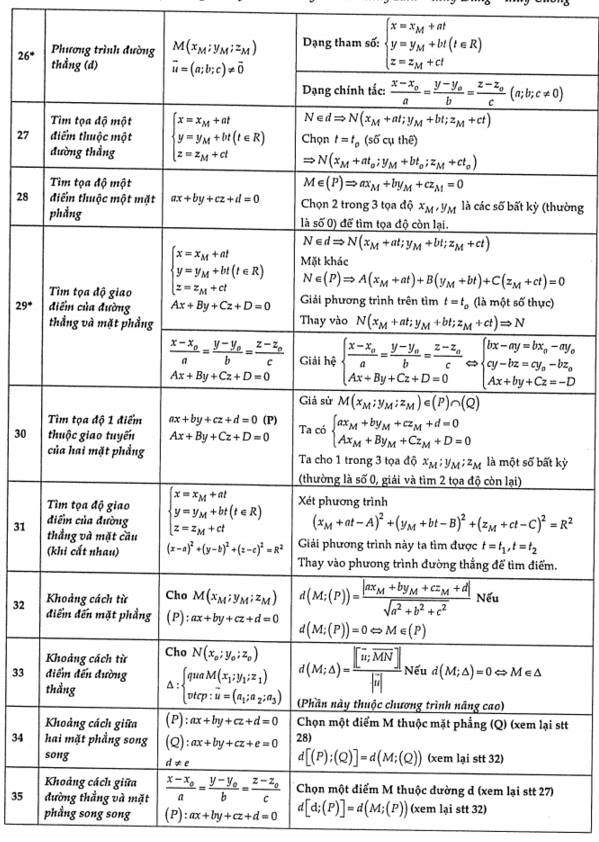 26*
Phương trình đường
thẳng (d)
M(x_M; y_M; z_M)
u⃗ = (a;b;c) ≠ 0⃗
Dạng tham số: { x = x_M + at
y = y_M + bt (t ∈ R)
z = z_M + ct
Dạng chính tắc: (x − x_o)/a = (y − y_o)/b = (z − z_o)/c (a;b;c ≠ 0)
27
Tìm tọa độ một
điểm thuộc một
đường thẳng
{ x = x_M + at
y = y_M + bt (t ∈ R)
z = z_M + ct
N ∈ d ⇒ N(x_M + at; y_M + bt; z_M + ct)
Chọn t = t_o (số cụ thể)
⇒ N(x_M + at_o; y_M + bt_o; z_M + ct_o)
28
Tìm tọa độ một
điểm thuộc một mặt
phẳng
ax + by + cz + d = 0
M ∈ (P) ⇒ ax_M + by_M + cz_M = 0
Chọn 2 trong 3 tọa độ x_M, y_M là các số bất kỳ (thường
là số 0) để tìm tọa độ còn lại.
29*
Tìm tọa độ giao
điểm của đường
thẳng và mặt phẳng
{ x = x_M + at
y = y_M + bt (t ∈ R)
z = z_M + ct
Ax + By + Cz + D = 0
N ∈ d ⇒ N(x_M + at; y_M + bt; z_M + ct)
Mặt khác
N ∈ (P) ⇒ A(x_M + at) + B(y_M + bt) + C(z_M + ct) = 0
Giải phương trình trên tìm t = t_o (là một số thực)
Thay vào N(x_M + at; y_M + bt; z_M + ct) ⇒ N
(x − x_o)/a = (y − y_o)/b = (z − z_o)/c
Ax + By + Cz + D = 0
Giải hệ { (x − x_o)/a = (y − y_o)/b = (z − z_o)/c
Ax + By + Cz + D = 0
⇔ { bx − ay = bx_o − ay_o
cy − bz = cy_o − bz_o
Ax + by + Cz = −D
30
Tìm tọa độ 1 điểm
thuộc giao tuyến
của hai mặt phẳng
ax + by + cz + d = 0 (P)
Ax + By + Cz + D = 0
Giả sử M(x_M; y_M; z_M) ∈ (P) ∩ (Q)
Ta có { ax_M + by_M + cz_M + d = 0
Ax_M + By_M + Cz_M + D = 0
Ta cho 1 trong 3 tọa độ x_M; y_M; z_M là một số bất kỳ
(thường là số 0, giải và tìm 2 tọa độ còn lại)
31
Tìm tọa độ giao
điểm của đường
thẳng và mặt cầu
(khi cắt nhau)
{ x = x_M + at
y = y_M + bt (t ∈ R)
z = z_M + ct
(x−a)² + (y−b)² + (z−c)² = R²
Xét phương trình
(x_M + at − A)² + (y_M + bt − B)² + (z_M + ct − C)² = R²
Giải phương trình này ta tìm được t = t₁, t = t₂
Thay vào phương trình đường thẳng để tìm điểm.
32
Khoảng cách từ
điểm đến mặt phẳng
Cho M(x_M; y_M; z_M)
(P): ax + by + cz + d = 0
d(M;(P)) = |ax_M + by_M + cz_M + d| / √(a² + b² + c²) Nếu
d(M;(P)) = 0 ⇔ M ∈ (P)
33
Khoảng cách từ
điểm đến đường
thẳng
Cho N(x_o; y_o; z_o)
Δ: { qua M(x₁; y₁; z₁)
vtcp: u⃗ = (a₁; a₂; a₃)
d(M;Δ) = |[u⃗; MN⃗]| / |u⃗| Nếu d(M;Δ) = 0 ⇔ M ∈ Δ
(Phần này thuộc chương trình nâng cao)
34
Khoảng cách giữa
hai mặt phẳng song
song
(P): ax + by + cz + d = 0
(Q): ax + by + cz + e = 0
d ≠ e
Chọn một điểm M thuộc mặt phẳng (Q) (xem lại stt
28)
d[(P);(Q)] = d(M;(Q)) (xem lại stt 32)
35
Khoảng cách giữa
đường thẳng và mặt
phẳng song song
(x − x_o)/a = (y − y_o)/b = (z − z_o)/c
(P): ax + by + cz + d = 0
Chọn một điểm M thuộc đường d (xem lại stt 27)
d[d;(P)] = d(M;(P)) (xem lại stt 32)